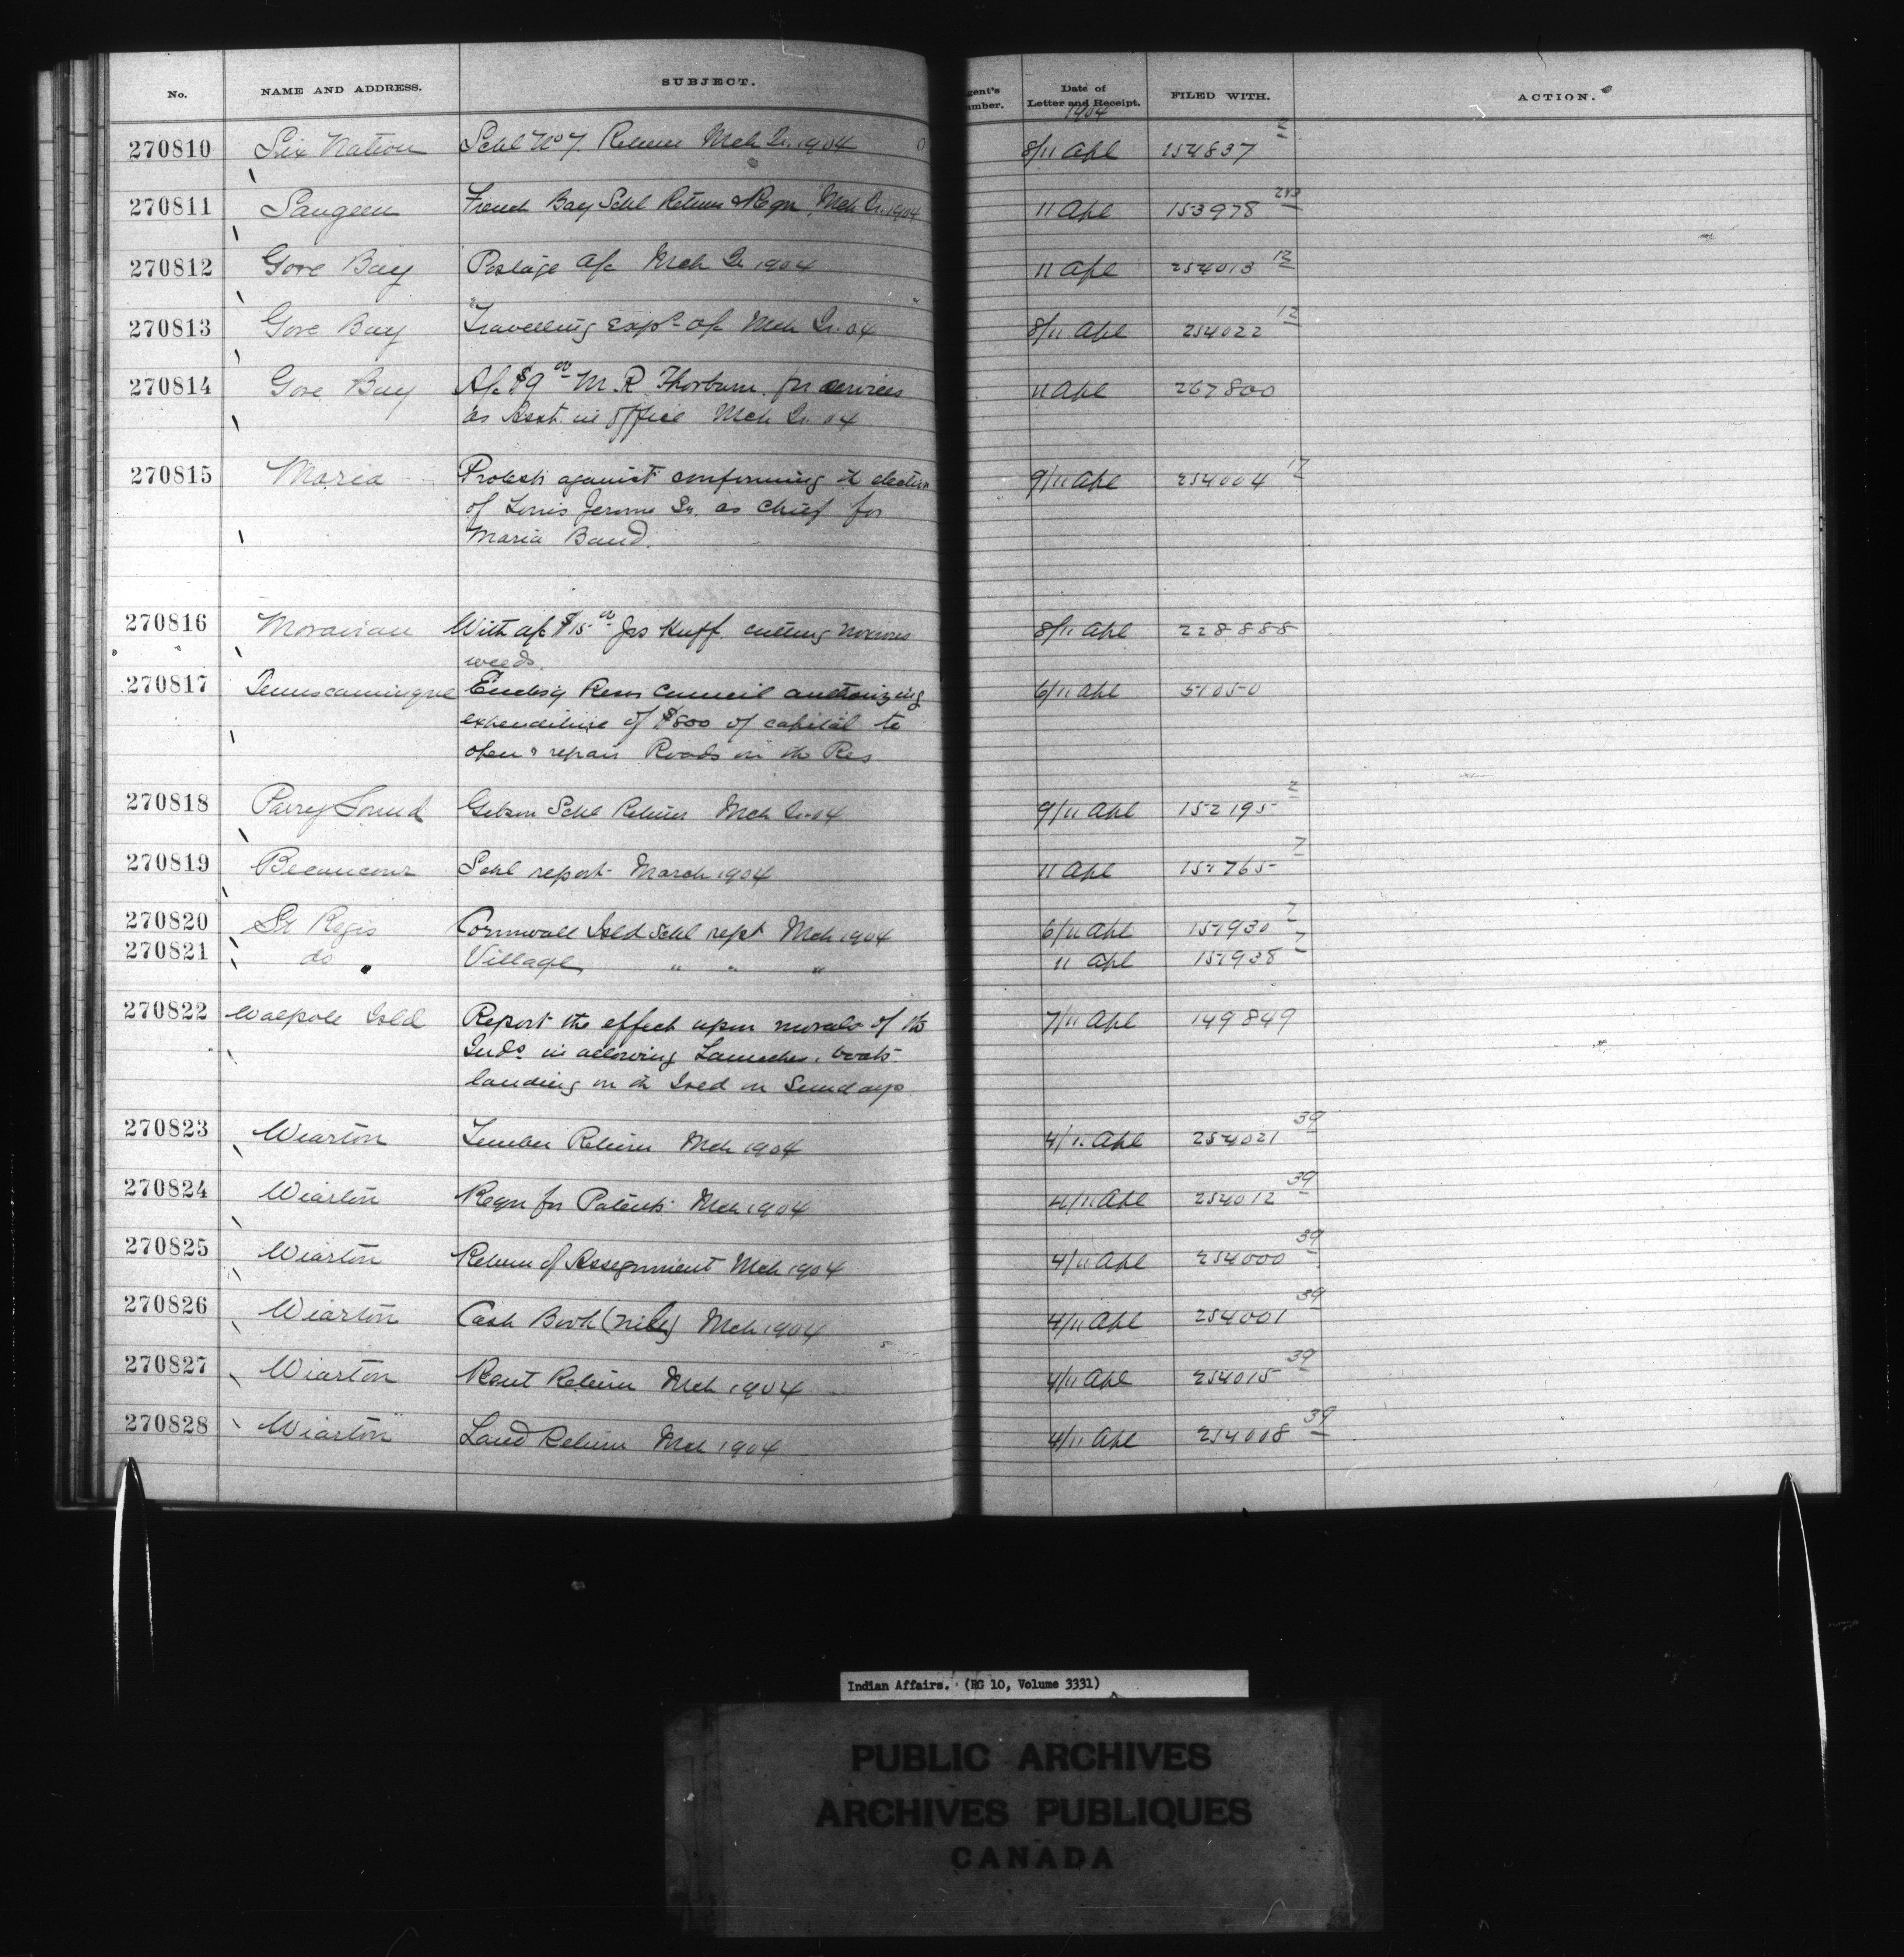 No. NAME AND ADDRESS. SUBJECT. gent's umber. Date of Letter and Receipt. FILED WITH. ACTION.
1904
270810 Six Nation Schl No 7. Return Mch Qr. 1904 8/11 Apl 154837 2
270811 Saugeen French Bay Schl Return & Reqn Mch Qr. 1904 11 Apl 153978
270812 Gore Bay Postage a/c Mch Qr 1904 11 Apl 254013 12
270813 Gore Bay Travelling exps a/c Mch Qr. 04 8/11 Apl 254022 12
270814 Gore Bay A/c $9 00 M. R. Thorburn for services 11 Apl 267800
as Asst. in office Mch Qr. 04
270815 Maria Protests against confirming th election 9/11 Apl 254004 17
of Louis Jerome Sr. as Chief for
Maria Band.
270816 Moravian With a/c $15 00 Jos Huff. cutting noxious 8/11 Apl 228888
weeds.
270817 Temiscamingue Enclosg Resn Council authorizing 6/11 Apl 51050
expenditure of $800 of capital to
open & repair Roads in the Res
270818 Parry Sound Gibson Schl Return Mch Qr. 04 9/11 Apl 152195 2
270819 Becancour Schl report March 1904 11 Apl 151765 7
270820 St Regis Cornwall Isld Schl rept Mch 1904 6/11 Apl 151930 7
270821 do Village " " " 11 Apl 151938 7
270822 Walpole Isld Report the effect upon morals of the 7/11 Apl 149849
Inds. in allowing Launches, boats
landing on th Isld on Sundays
270823 Wiarton Timber Return Mch 1904 4/11 Apl 254021 39
270824 Wiarton Reqn for Patents Mch 1904 4/11 Apl 254012 39
270825 Wiarton Return of Assignment Mch 1904 4/11 Apl 254000 39
270826 Wiarton Cash Book (nil) Mch 1904 4/11 Apl 254001 39
270827 Wiarton Rent Return Mch 1904 4/11 Apl 254015 39
270828 Wiarton Land Return Mch 1904 4/11 Apl 254008 39
Indian Affairs. (RG 10, Volume 3331)
PUBLIC ARCHIVES
ARCHIVES PUBLIQUES
CANADA